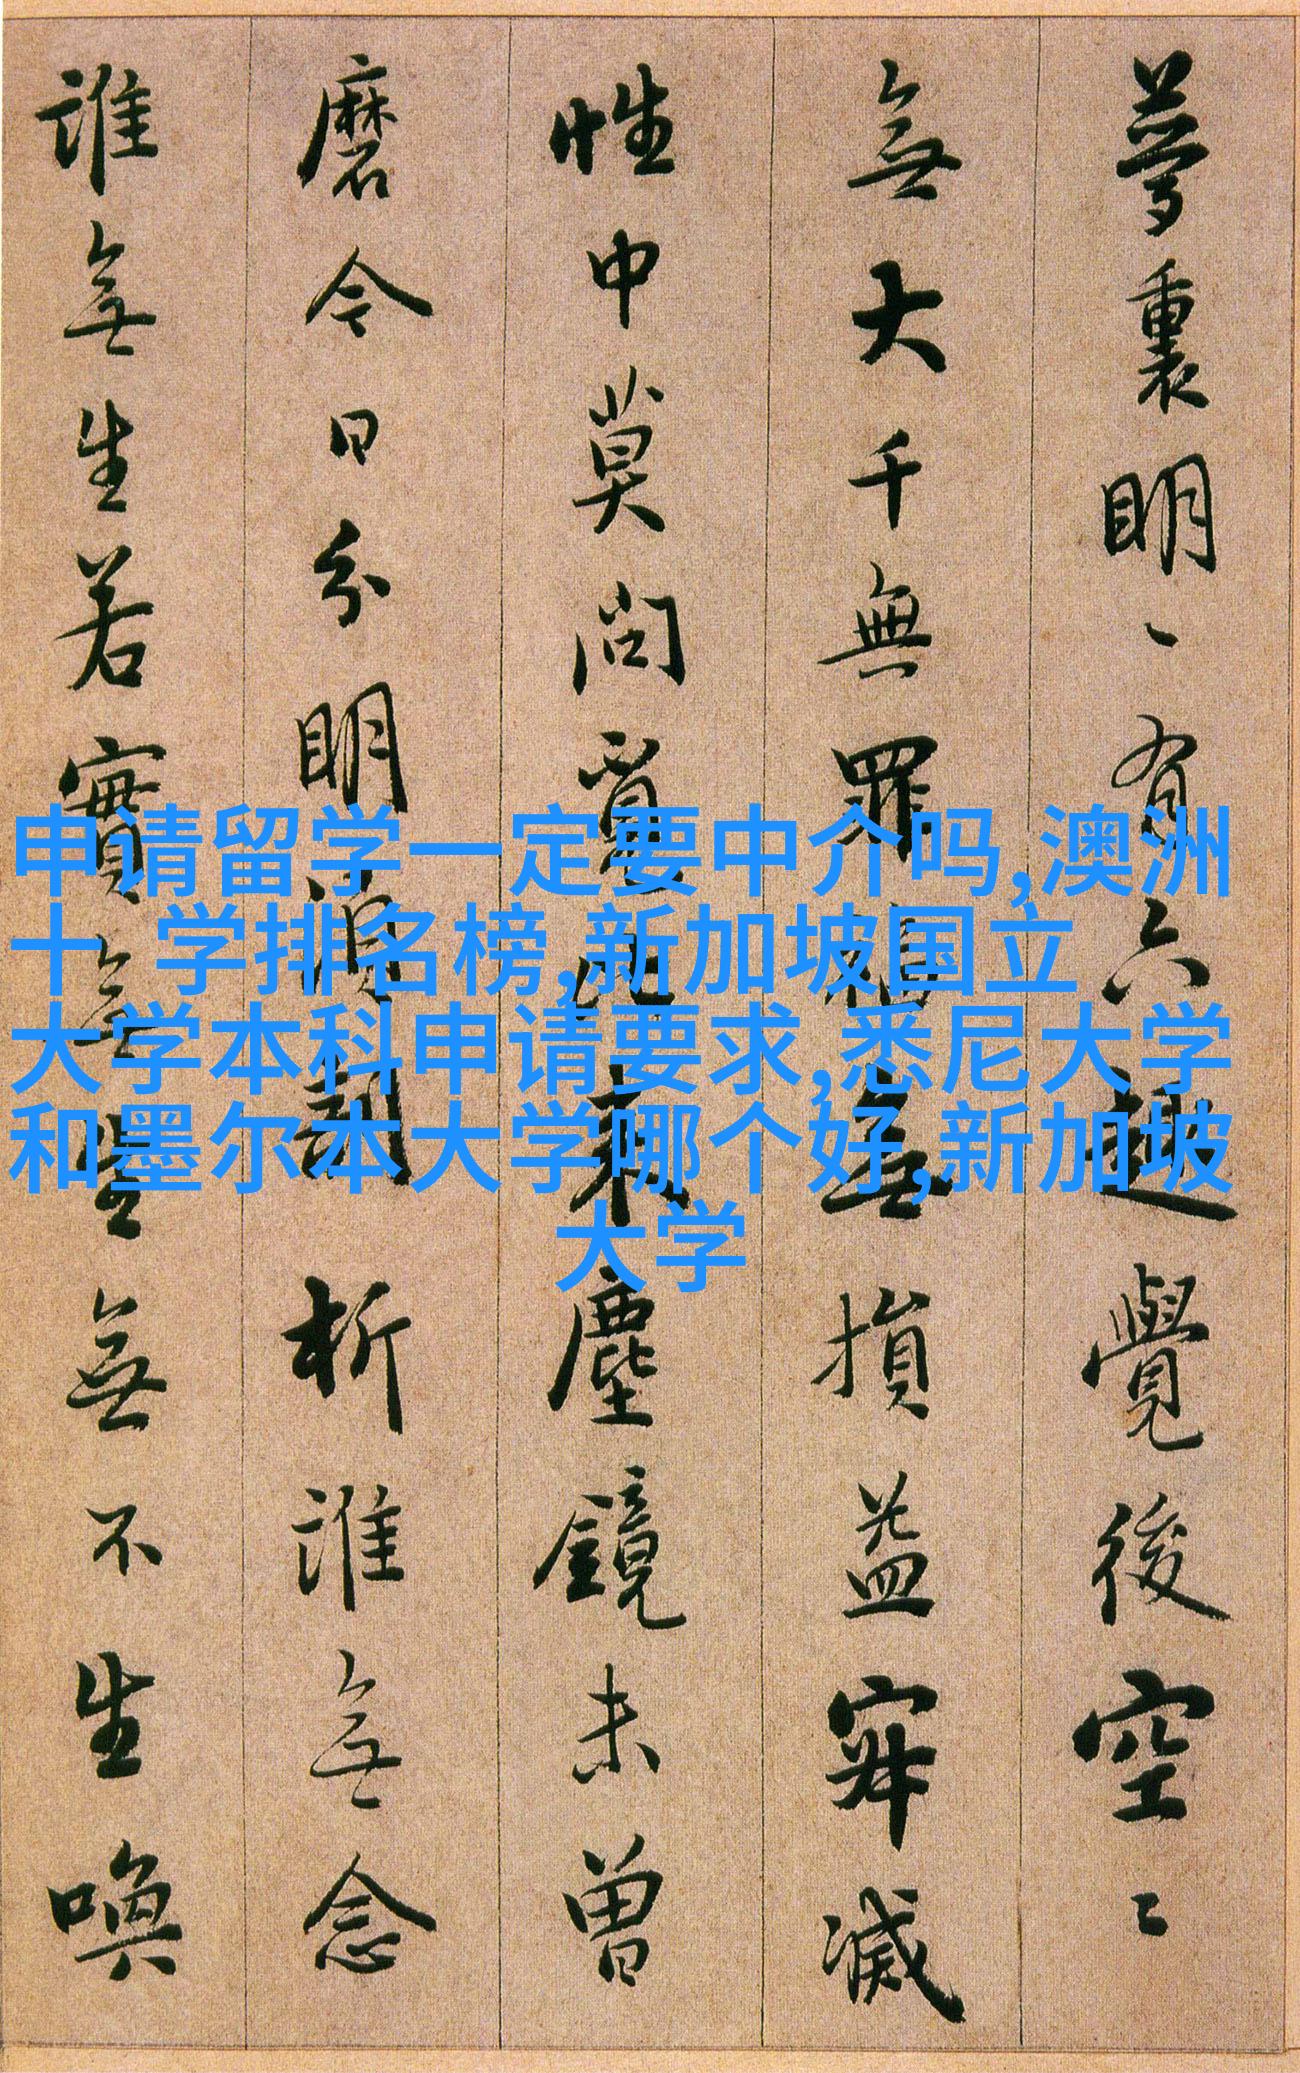 夢裏明〻有六趣覺後空〻
無大千無罪福無損益寂滅
性中莫問覓比來塵鏡未曾
磨今日分明須剖析誰無念
誰無生若實無生無不生喚
申请留学一定要中介吗,澳洲
十 学排名榜,新加坡国立
大学本科申请要求,悉尼大学
和墨尔本大学哪个好,新加坡
大学